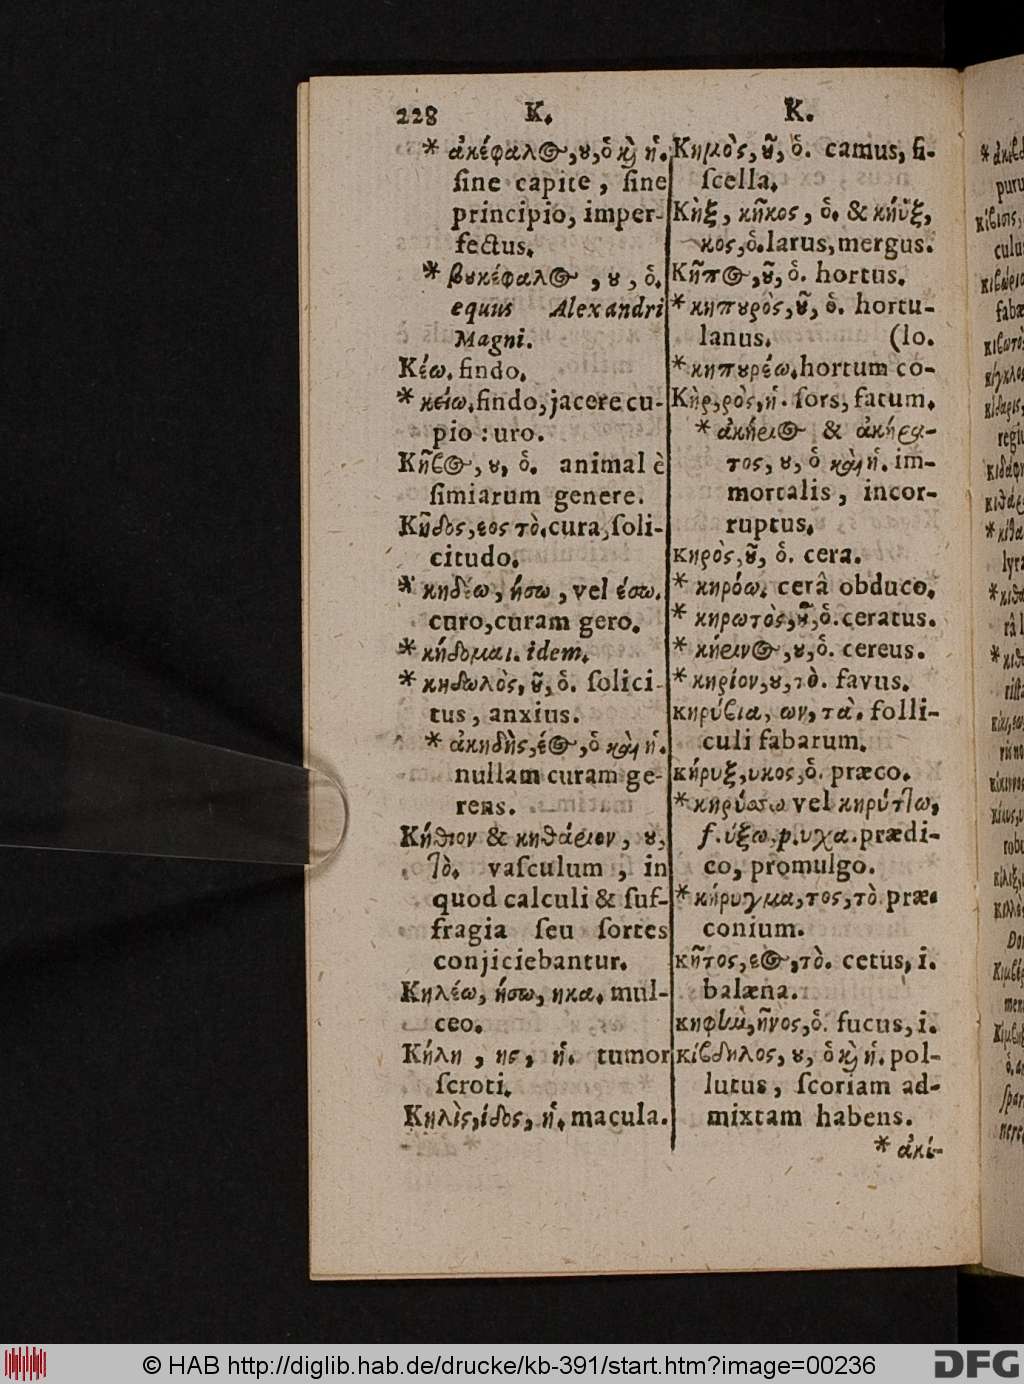 228 K. K.
* ἀκέφαλος, ου, ὁ καὶ ἡ.
ſine capite, ſine
principio, imper-
fectus.
* βουκέφαλος, ου, ὁ.
equus Alexandri
Magni.
Κέω. findo.
* κείω. findo, jacere cu-
pio: uro.
Κῆϐος, ου, ὁ. animal è
ſimiarum genere.
Κῆδος, εος τὸ. cura, ſoli-
citudo.
* κηδέω, ήσω, vel έσω.
curo, curam gero.
* κήδομαι. idem.
* κηδωλὸς, οῦ, ὁ. ſolici-
tus, anxius.
* ἀκηδὴς, έος, ὁ καὶ ἡ.
nullam curam ge-
rens.
Κήθιον & κηθάριον, ου,
τὸ. vaſculum, in
quod calculi & ſuf-
fragia ſeu ſortes
conjiciebantur.
Κηλέω, ήσω, ηκα. mul-
ceo.
Κήλη, ης, ἡ. tumor
ſcroti.
Κηλὶς, ίδος, ἡ. macula.
Κημὸς, οῦ, ὁ. camus, fi-
ſcella.
Κὴξ, κηκος, ὁ. & κήϋξ,
κος, ὁ. larus, mergus.
Κῆπος, ου, ὁ. hortus.
* κηπουρὸς, οῦ, ὁ. hortu-
lanus. (lo.
* κηπουρέω. hortum co-
Κὴρ, ρὸς, ἡ. ſors, fatum.
* ἀκήριος & ἀκήρα-
τος, ου, ὁ καὶ ἡ. im-
mortalis, incor-
ruptus.
κηρὸς, οῦ, ὁ. cera.
* κηρόω. cerâ obduco.
* κηρωτὸς, οῦ, ὁ. ceratus.
* κήρινος, ου, ὁ. cereus.
* κηρίον, ου, τὸ. favus.
κηρύϐια, ων, τὰ. folli-
culi fabarum.
κήρυξ, υκος, ὁ. præco.
* κηρύσσω vel κηρύττω,
f. ύξω. p. υχα. prædi-
co, promulgo.
* κήρυγμα, τος, τὸ præ-
conium.
κῆτος, εος, τὸ. cetus, i.
balæna.
κηφὴν, ῆνος, ὁ. fucus, i.
κίϐδηλος, ου, ὁ καὶ ἡ. pol-
lutus, ſcoriam ad-
mixtam habens.
* ἀκί-
© HAB http://diglib.hab.de/drucke/kb-391/start.htm?image=00236
DFG